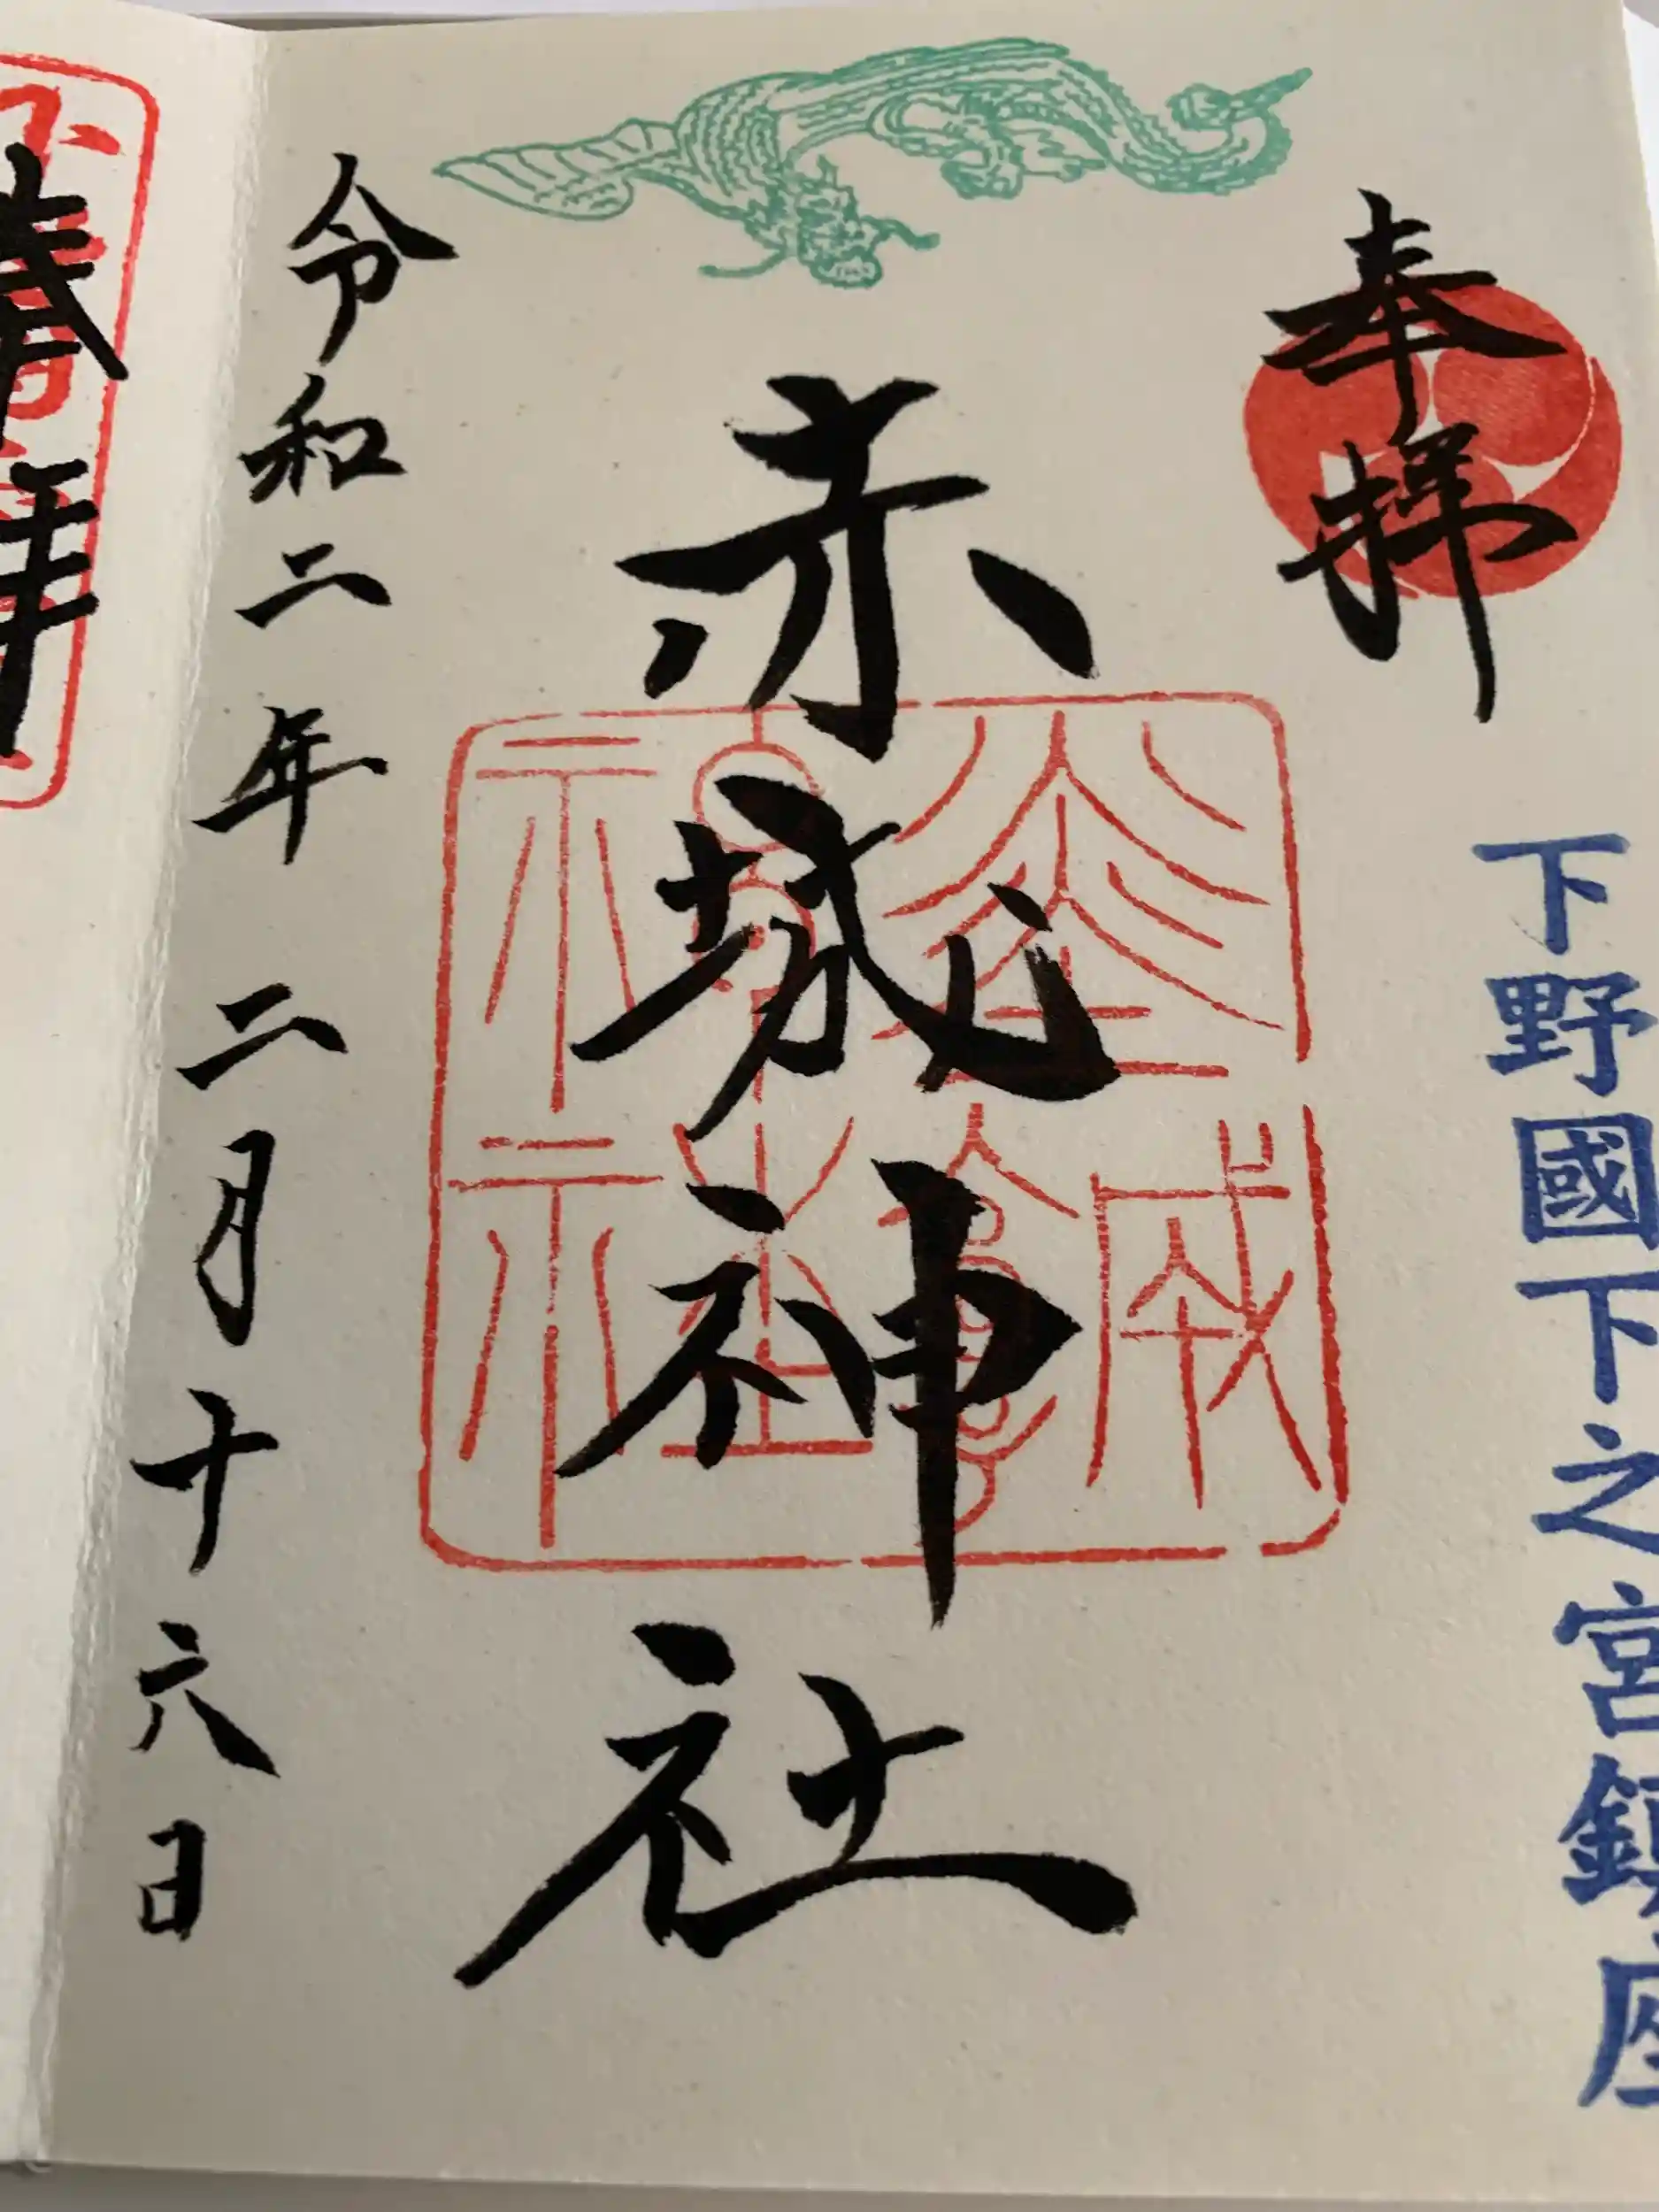 奉拝
下野國下之宮鎮座
赤城神社
令和二年二月十六日
奉拝